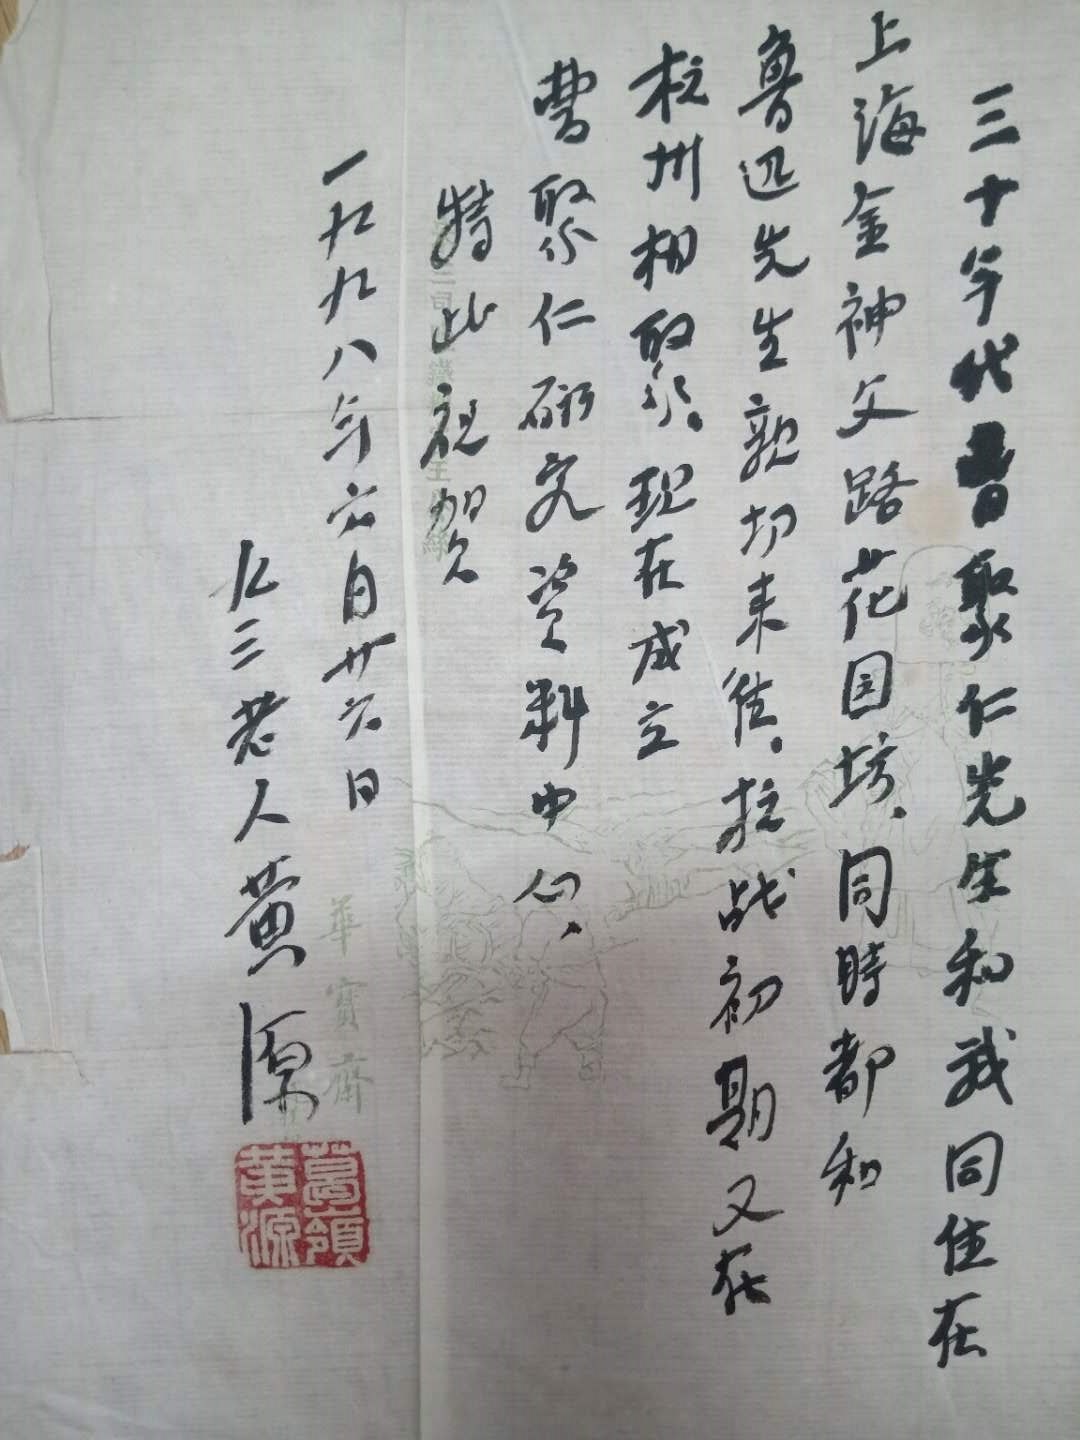 三十年代曹聚仁先生和我同住在
上海金神父路花园坊、同時都和
鲁迅先生親切来往。抗战初期又在
杭州相聚。現在成立
曹聚仁研究资料中心、
特此祝贺
一九九八年六月廿六日
九三老人黄源
葛嶺
黄源
華寶齋